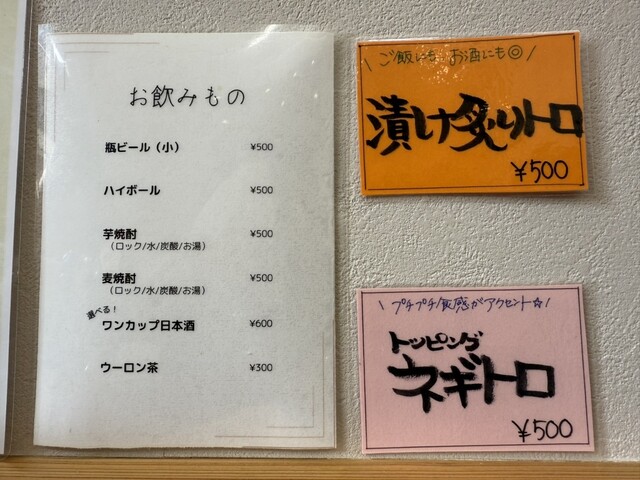 お飲みもの
瓶ビール（小） ¥500
ハイボール ¥500
芋焼酎 ¥500
（ロック/水/炭酸/お湯）
麦焼酎 ¥500
（ロック/水/炭酸/お湯）
選べる！
ワンカップ日本酒 ¥600
ウーロン茶 ¥300
\ ご飯にも お酒にも◎ /
漬け炙りトロ
¥500
\ プチプチ食感がアクセント☆ /
トッピング
ネギトロ
¥500